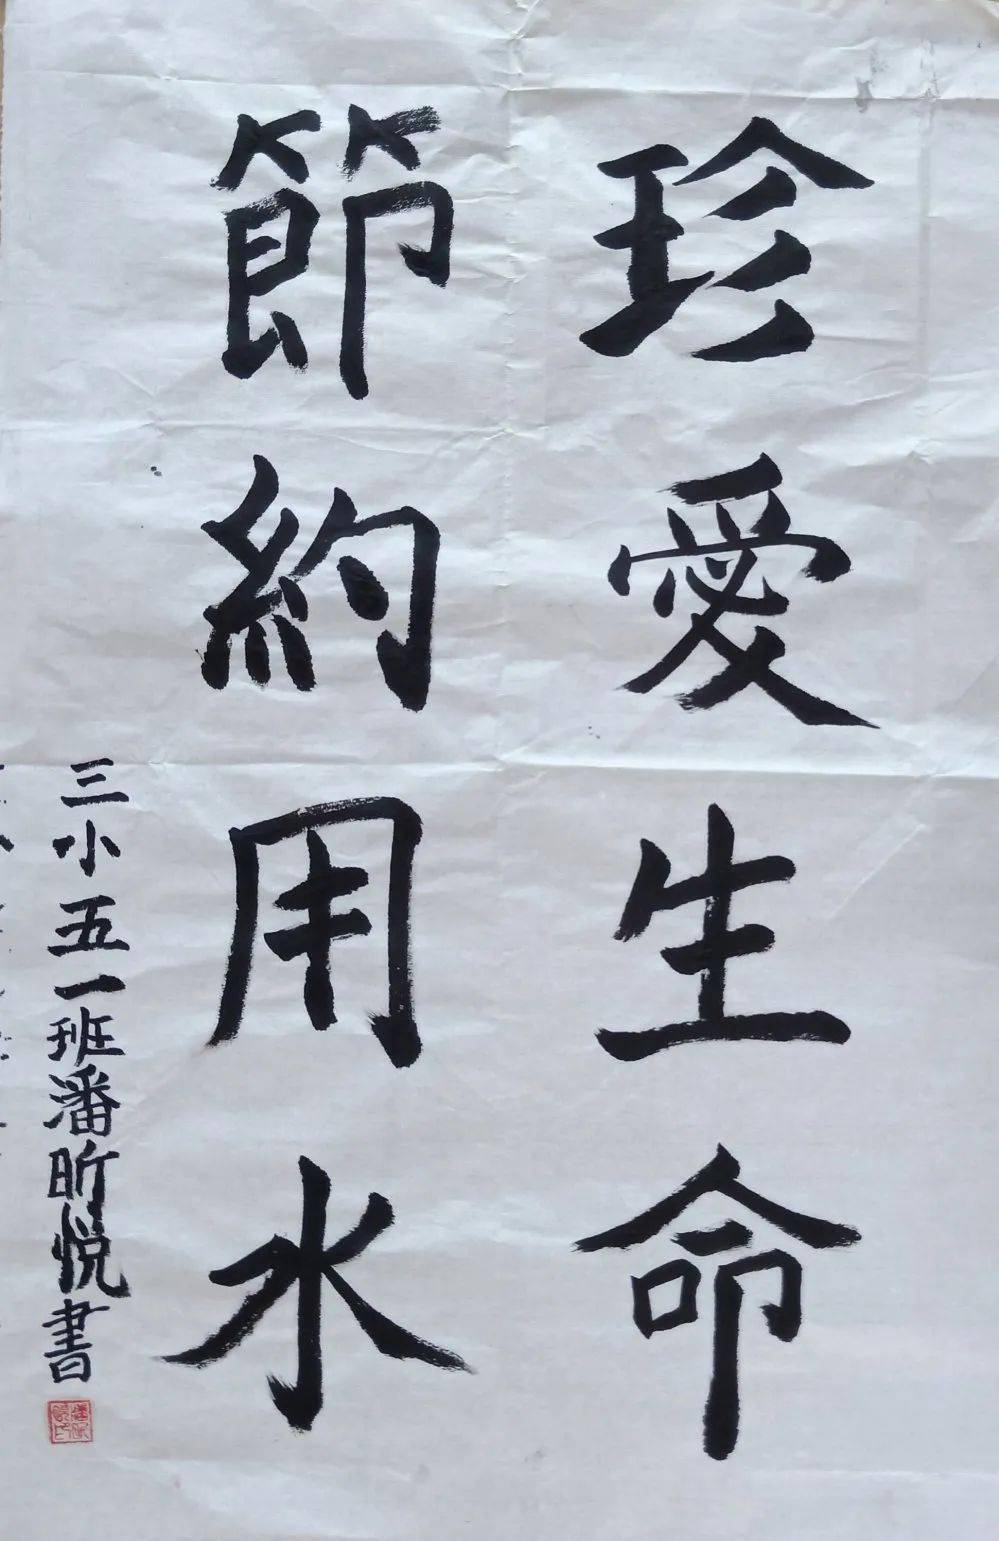 珍愛生命
節約用水
三小五一班潘昕悦書